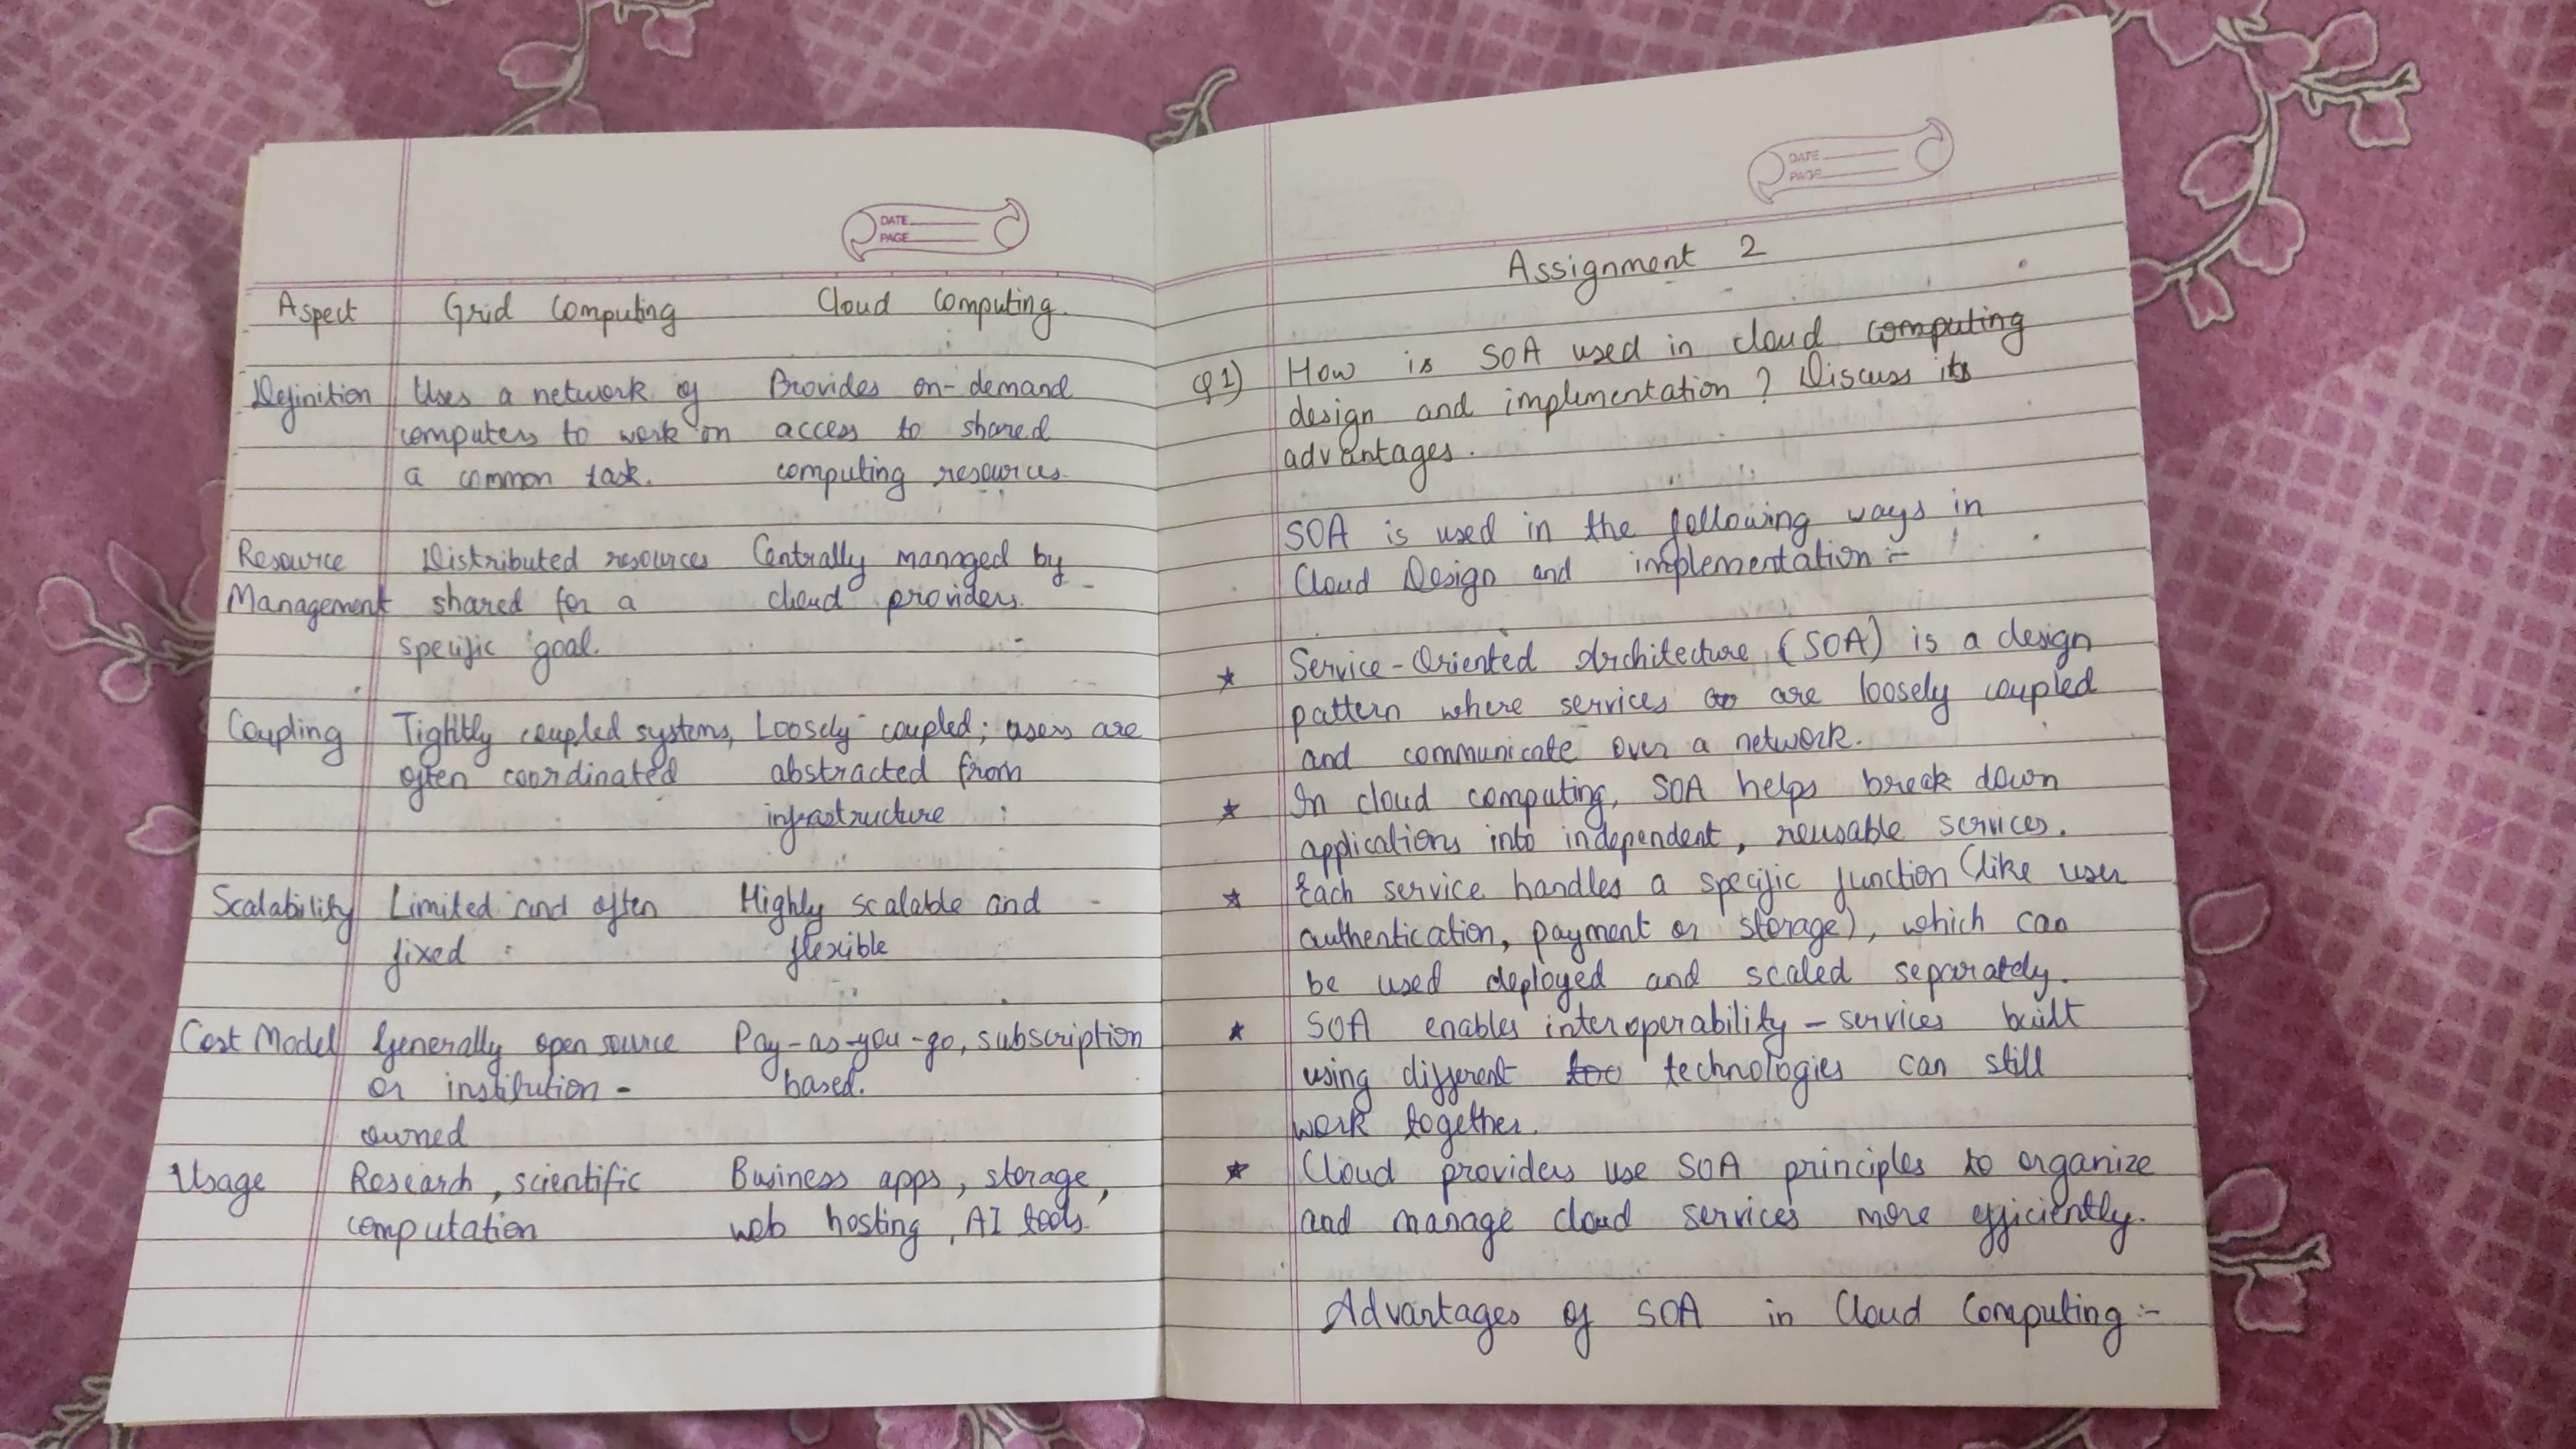 DATE
PAGE
Aspect Grid Computing Cloud Computing.
Definition Uses a network of Provides on-demand
computers to work on access to shared
a common task. computing resources.
Resource Distributed resources Centrally managed by
Management shared for a cloud providers.
specific goal.
Coupling Tightly coupled systems, Loosely coupled; users are
often coordinated abstracted from
infrastructure
Scalability Limited and often Highly scalable and
fixed flexible
Cost Model Generally open source Pay-as-you-go, subscription
or institution- based.
owned
Usage Research, scientific Business apps, storage,
computation web hosting, AI tools.
DATE
PAGE
Assignment 2
Q1) How is SOA used in cloud computing
design and implimentation? Discuss its
advantages.
SOA is used in the following ways in
Cloud Design and implementation :-
★ Service-Oriented Architecture (SOA) is a design
pattern where services are loosely coupled
and communicate over a network.
★ In cloud computing, SOA helps break down
applications into independent, reusable services.
★ Each service handles a specific function (like user
authentication, payment or storage), which can
be used deployed and scaled separately.
★ SOA enables interoperability - services built
using different too technologies can still
work together.
★ Cloud providers use SOA principles to organize
and manage cloud services more efficiently.
Advantages of SOA in Cloud Computing :-